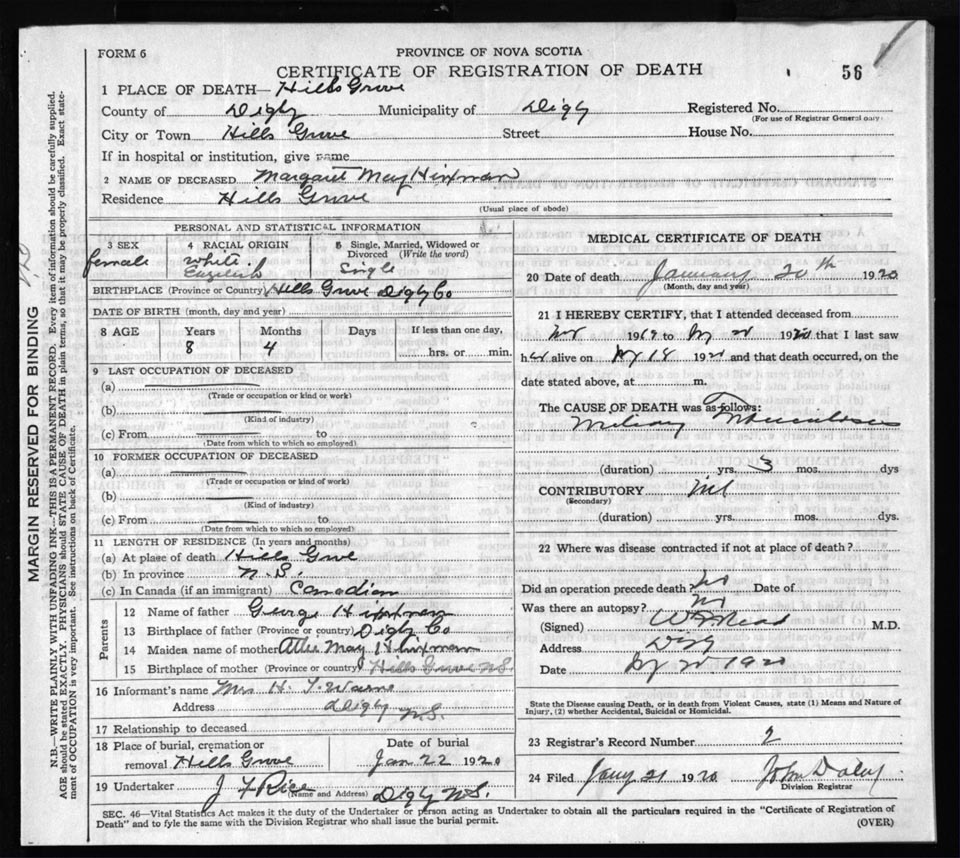 FORM 6
PROVINCE OF NOVA SCOTIA
CERTIFICATE OF REGISTRATION OF DEATH
56
1 PLACE OF DEATH— Hills Grove
County of Digby Municipality of Digby Registered No.
(For use of Registrar General only)
City or Town Hills Grove Street House No.
If in hospital or institution, give name
2 NAME OF DECEASED Margaret May Hinxman
Residence Hills Grove
(Usual place of abode)
PERSONAL AND STATISTICAL INFORMATION
3 SEX 4 RACIAL ORIGIN 5 Single, Married, Widowed or Divorced (Write the word)
female White. English Single
BIRTHPLACE (Province or Country) Hills Grove Digby Co
DATE OF BIRTH (month, day and year)
8 AGE Years 8 Months Days If less than one day,
8 4 hrs. or min.
9 LAST OCCUPATION OF DECEASED
(a)
(Trade or occupation or kind or work)
(b)
(Kind of industry)
(c) From to
(Date from which to which so employed)
10 FORMER OCCUPATION OF DECEASED
(a)
(Trade or occupation or kind of work)
(b)
(Kind of industry)
(c) From to
(Date from which to which so employed)
11 LENGTH OF RESIDENCE (In years and months)
(a) At place of death Hills Grove
(b) In province N.S.
(c) In Canada (if an immigrant) Canadian
Parents
12 Name of father George Hinxman
13 Birthplace of father (Province or country) Digby Co
14 Maiden name of mother May Hinxman
15 Birthplace of mother (Province or country) Hills Grove NS
16 Informant's name Mrs H. T. Warne
Address Digby N.S.
17 Relationship to deceased
18 Place of burial, cremation or Date of burial
removal Hills Grove Jan 22 1920
19 Undertaker J F Rice (Name and Address) Digby N.S.
MEDICAL CERTIFICATE OF DEATH
20 Date of death January 20th 1920
(Month, day and year)
21 I HEREBY CERTIFY, that I attended deceased from
1919 to 1920 that I last saw
her alive on 18 192 and that death occurred, on the
date stated above, at m.
The CAUSE OF DEATH was as follows:
Miliary Tuberculosis
(duration) yrs. 3 mos. dys
CONTRIBUTORY nil
(Secondary)
(duration) yrs. mos. dys.
22 Where was disease contracted if not at place of death?
Did an operation precede death? no Date of
Was there an autopsy? no
(Signed) M.D.
Address Digby
Date 1920
State the Disease causing Death, or in death from Violent Causes, state (1) Means and Nature of
Injury, (2) whether Accidental, Suicidal or Homicidal.
23 Registrar's Record Number 2
24 Filed Jany 21 1920 John Daley
Division Registrar
SEC. 46—Vital Statistics Act makes it the duty of the Undertaker or person acting as Undertaker to obtain all the particulars required in the "Certificate of Registration of
Death" and to fyle the same with the Division Registrar who shall issue the burial permit.
(OVER)
MARGIN RESERVED FOR BINDING
N.B.—WRITE PLAINLY WITH UNFADING INK—THIS IS A PERMANENT RECORD. Every item of information should be carefully supplied.
AGE should be stated EXACTLY. PHYSICIANS should STATE CAUSE OF DEATH in plain terms, so that it may be properly classified. Exact state-
ment of OCCUPATION is very important. See instructions on back of Certificate.